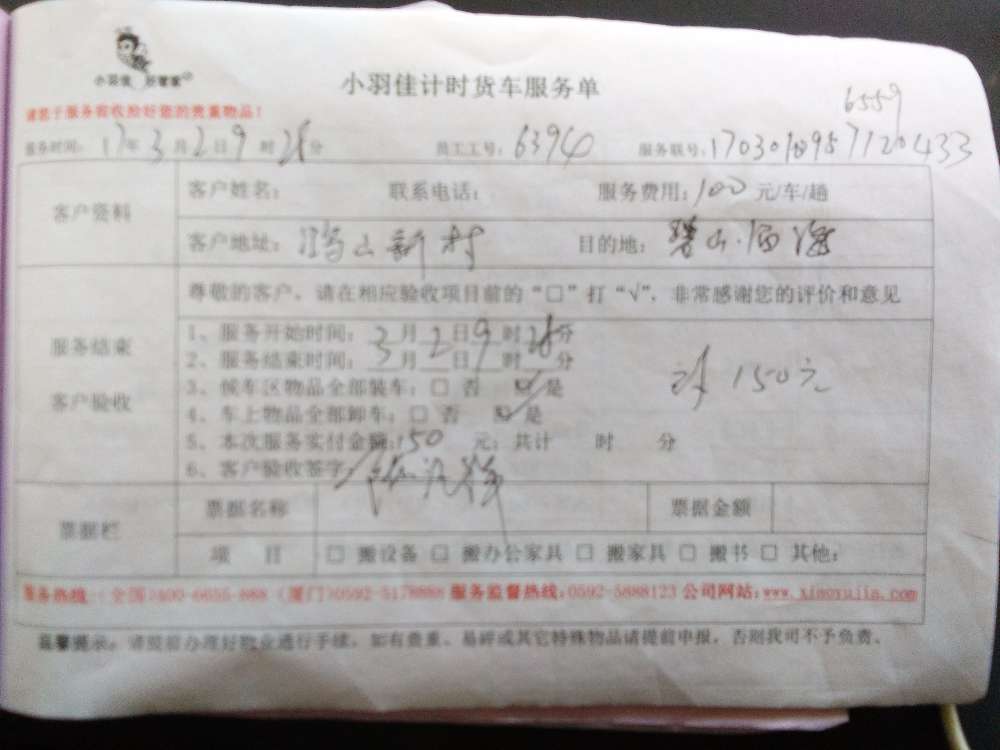 小羽佳 好管家
小羽佳计时货车服务单
请您于服务前收拾好您的贵重物品!
6559
服务时间: 17年3月2日9时28分 员工工号: 6394 服务联号: 170301095 7120433
客户资料
客户姓名: 联系电话: 服务费用: 100元/车/趟
客户地址: 山新村 目的地: 碧山·
服务结束
客户验收
尊敬的客户,请在相应验收项目前的“□”打“√”,非常感谢您的评价和意见
1、服务开始时间: 3月2日9时28分
2、服务结束时间: 3月2日9时28分
3、候车区物品全部装车: □ 否 ☑ 是
4、车上物品全部卸车: □ 否 ☑ 是
5、本次服务实付金额: 150 元; 共计 时 分
6、客户验收签字:
150元
票据栏
票据名称 票据金额
项 目 □ 搬设备 □ 搬办公家具 □ 搬家具 □ 搬书 □ 其他:
服务热线:(全国)400-6655-888 (厦门)0592-5178888 服务监督热线:0592-5888123 公司网站:www.xiaoyujia.com
温馨提示: 请提前办理好物业通行手续, 如有贵重、易碎或其它特殊物品请提前申报, 否则我司不予负责。